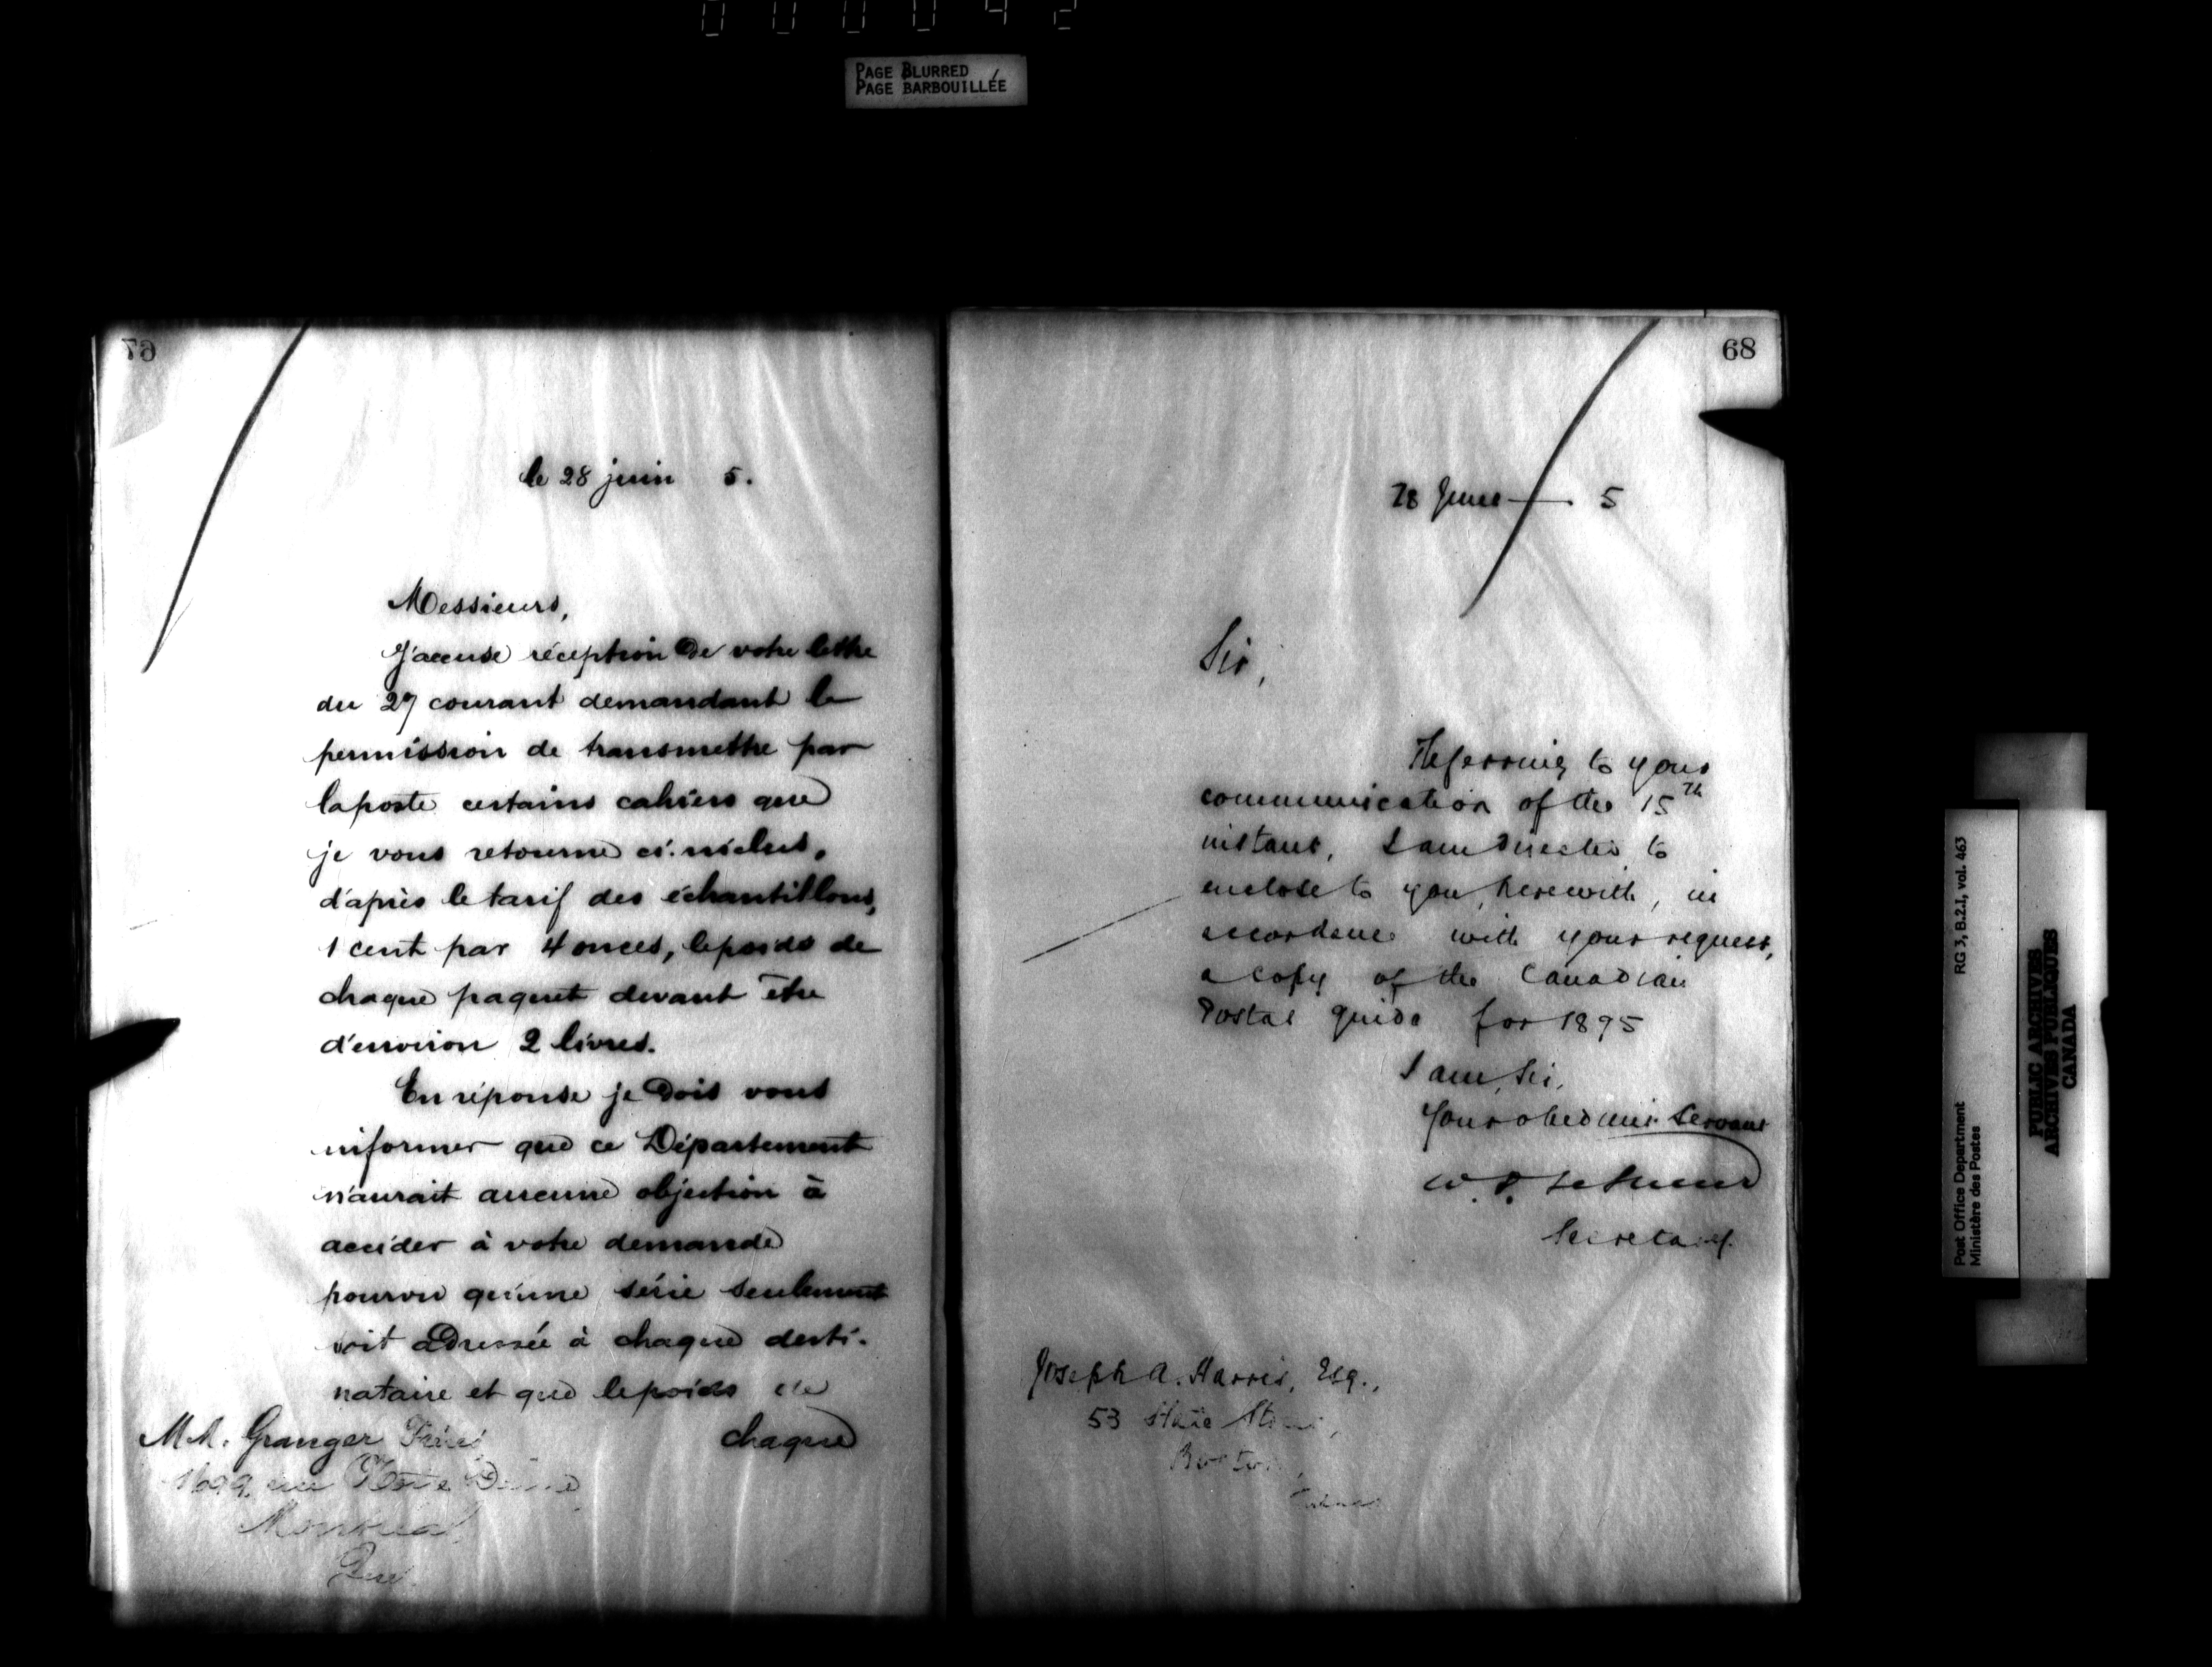 000042
PAGE BLURRED
PAGE BARBOUILLÉE
67
le 28 juin 5.
Messieurs,
J'accuse réception de votre lettre
du 27 courant demandant la
permission de transmettre par
la poste certains cahiers que
je vous retourne ci-inclus,
d'après le tarif des échantillons,
1 cent par 4 onces, le poids de
chaque paquet devant être
d'environ 2 livres.
En réponse je dois vous
informer que ce Département
n'aurait aucune objection à
accéder à votre demande
pourvu qu'une série seulement
soit adressée à chaque desti-
nataire et que le poids de
chaque
MM. Granger Frères
1699 rue Notre Dame
Montreal
Que.
68
28 June 5
Sir,
Referring to your
communication of the 15th
instant, I am directed to
enclose to you, herewith, in
accordance with your request,
a copy of the Canadian
Postal Guide for 1895
I am, Sir,
Your obedient Servant
W. D. LeSueur
Secretary.
Joseph A. Harris, Esq.,
53 State Street,
Boston,
Post Office Department
Ministère des Postes
RG 3, B.2.I, vol. 463
PUBLIC ARCHIVES
ARCHIVES PUBLIQUES
CANADA